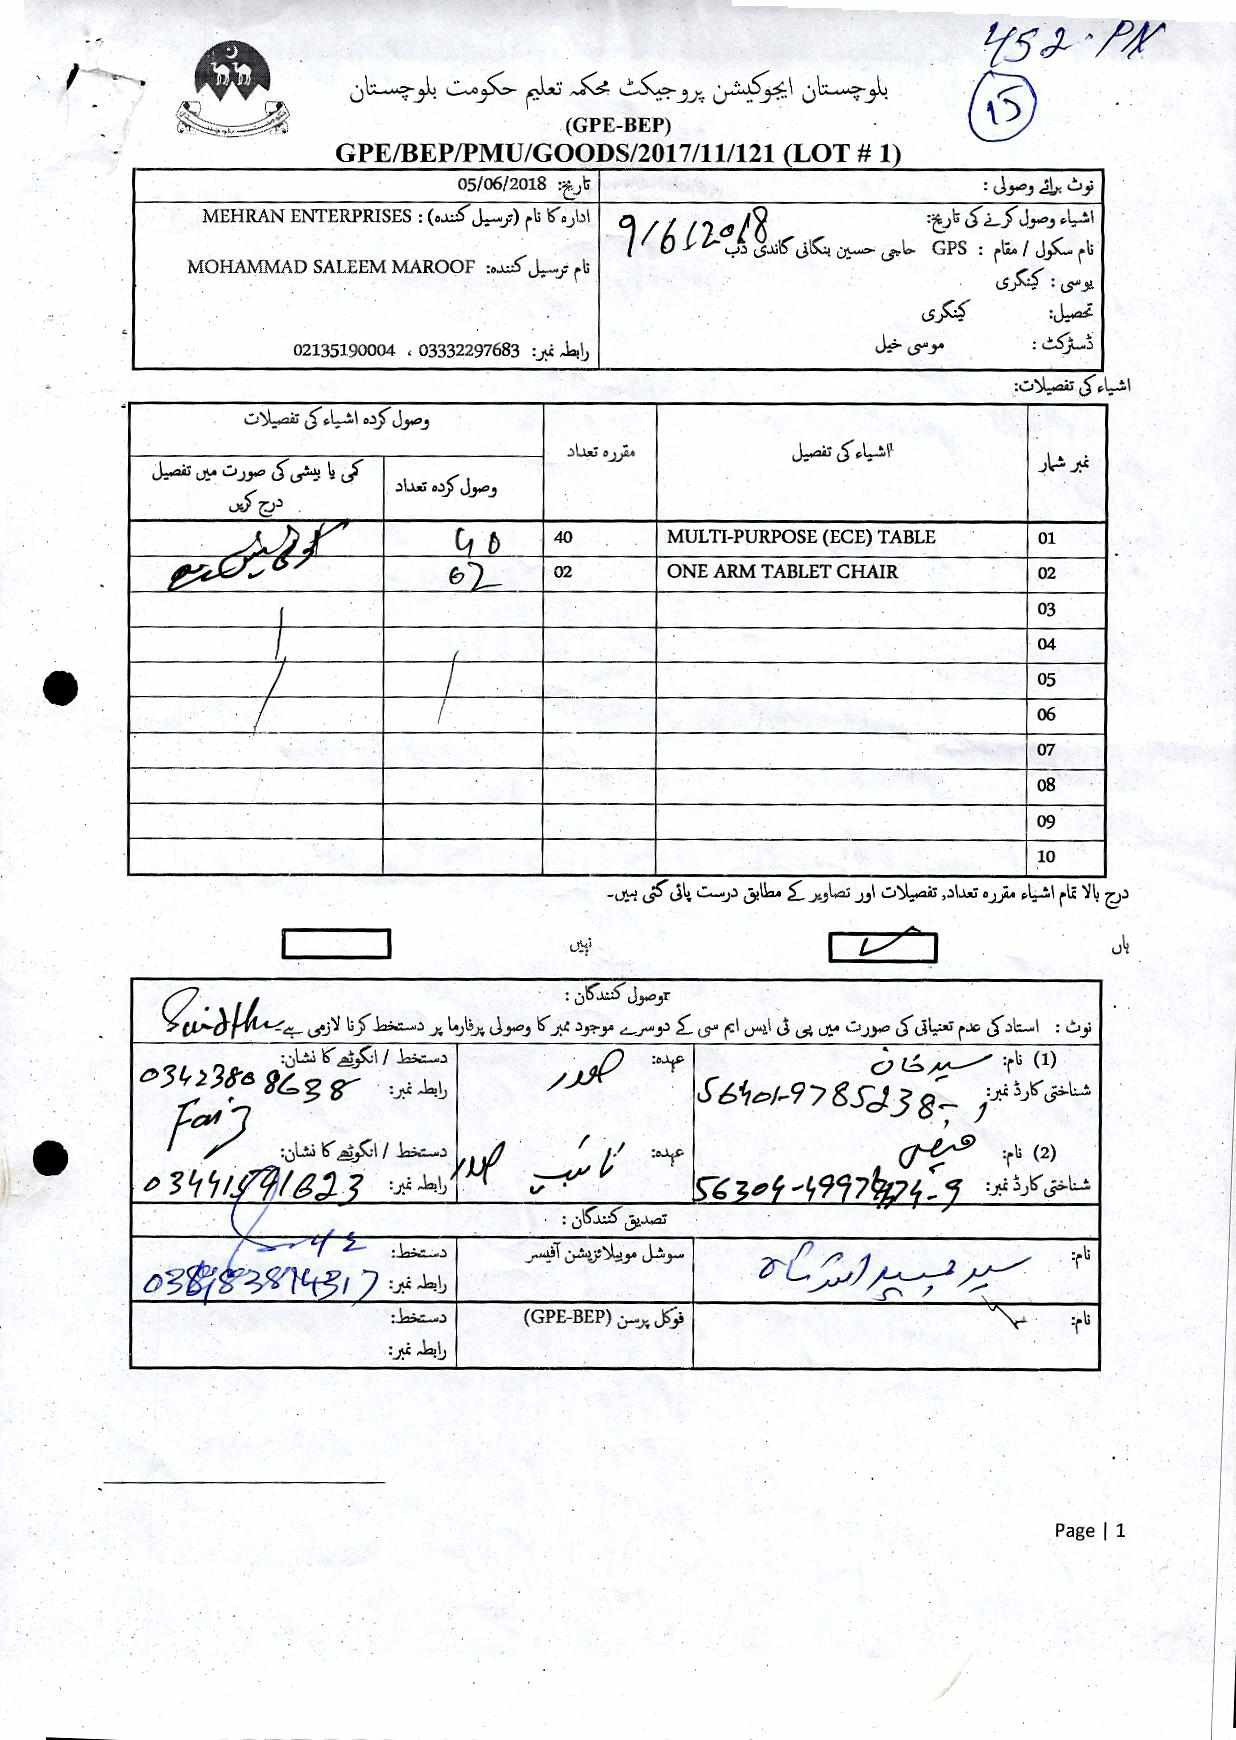 452-PN
15
بلوچستان ایجوکیشن پروجیکٹ محکمہ تعلیم حکومت بلوچستان
(GPE-BEP)
GPE/BEP/PMU/GOODS/2017/11/121 (LOT # 1)
نوٹ برائے وصولی :
تاریخ: 05/06/2018
اشیاء وصول کرنے کی تاریخ: 9/6/2018
ادارہ کا نام (ترسیل کنندہ) : MEHRAN ENTERPRISES
نام سکول / مقام : GPS حاجی حسین بنگانی گاندی ڈب
نام ترسیل کنندہ: MOHAMMAD SALEEM MAROOF
یو سی : کینگری
تحصیل: کینگری
ڈسٹرکٹ : موسی خیل
رابطہ نمبر: 03332297683 ، 02135190004
اشیاء کی تفصیلات:
نمبر شمار اشیاء کی تفصیل مقررہ تعداد وصول کردہ اشیاء کی تفصیلات
وصول کردہ تعداد کمی یا بیشی کی صورت میں تفصیل درج کریں
01 MULTI-PURPOSE (ECE) TABLE 40 40 کوئی نہیں ہے
02 ONE ARM TABLET CHAIR 02 02
03
04
05
06
07
08
09
10
درج بالا تمام اشیاء مقررہ تعداد, تفصیلات اور تصاویر کے مطابق درست پائی گئی ہیں۔
ہاں ✓ نہیں
وصول کنندگان :
نوٹ : استاد کی عدم تعیناتی کی صورت میں پی ٹی ایس ایم سی کے دوسرے موجود ممبر کا وصولی پرفارما پر دستخط کرنا لازمی ہے۔
(1) نام: سید خان عہدہ: صدر دستخط / انگوٹھے کا نشان:
شناختی کارڈ نمبر: 56401-9785238- رابطہ نمبر: 03423808638
Faiz
(2) نام: فیض عہدہ: نائب صدر دستخط / انگوٹھے کا نشان:
شناختی کارڈ نمبر: رابطہ نمبر:
تصدیق کنندگان :
نام: سید سوشل موبیلائزیشن آفیسر دستخط:
رابطہ نمبر:
نام: فوکل پرسن (GPE-BEP) دستخط:
رابطہ نمبر:
Page | 1